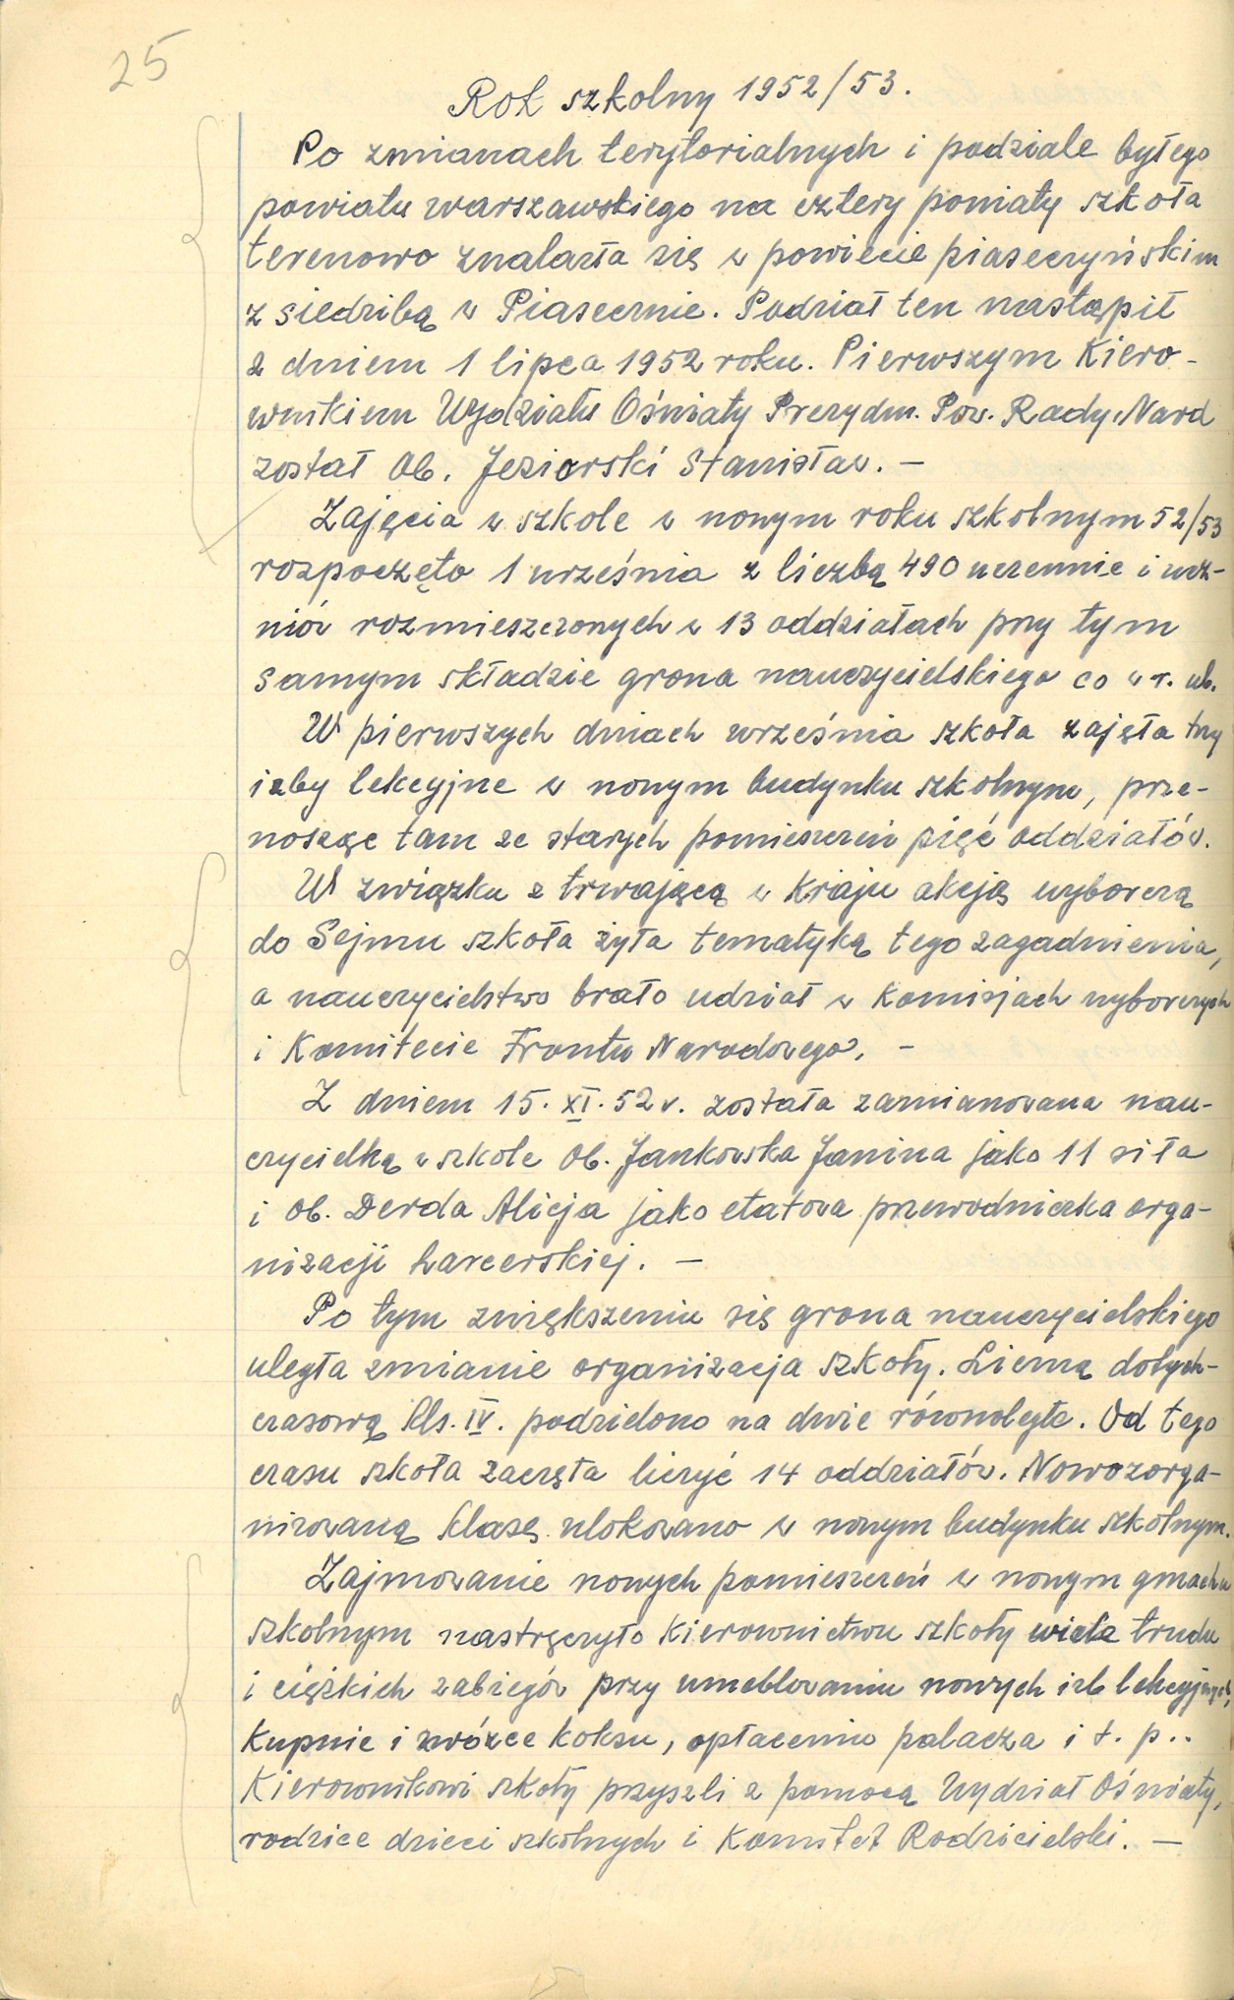 25
Rok szkolny 1952/53.
Po zmianach terytorialnych i podziale byłego
powiatu warszawskiego na cztery powiaty szkoła
terenowo znalazła się w powiecie piaseczyńskim
z siedzibą w Piasecznie. Podział ten nastąpił
z dniem 1 lipca 1952 roku. Pierwszym Kiero-
wnikiem Wydziału Oświaty Prezydm. Pow. Rady Nard
został Ob. Jeziorski Stanisław. —
Zajęcia w szkole w nowym roku szkolnym 52/53
rozpoczęto 1 września z liczbą 490 uczennic i ucz-
niów rozmieszczonych w 13 oddziałach przy tym
samym składzie grona nauczycielskiego co w r. ub.
W pierwszych dniach września szkoła zajęła trzy
izby lekcyjne w nowym budynku szkolnym, prze-
nosząc tam ze starych pomieszczeń pięć oddziałów.
W związku z trwającą w Kraju akcją wyborczą
do Sejmu szkoła żyła tematyką tego zagadnienia,
a nauczycielstwo brało udział w Komisjach wyborczych
i Komitecie Frontu Narodowego. —
Z dniem 15. XI. 52 r. została zamianowana nau-
czycielką w szkole Ob. Jankowska Janina jako 11 siła
i Ob. Derda Alicja jako etatowa przewodniczka orga-
nizacji harcerskiej. —
Po tym zwiększeniu się grona nauczycielskiego
uległa zmianie organizacja szkoły. Liczną dotych-
czasową kls. IV. podzielono na dwie równoległe. Od tego
czasu szkoła zaczęła liczyć 14 oddziałów. Nowozorga-
nizowaną klasę ulokowano w nowym budynku szkolnym.
Zajmowanie nowych pomieszczeń w nowym gmachu
szkolnym nastręczyło Kierownictwu szkoły wiele trudu
i ciężkich zabiegów przy umeblowaniu nowych izb lekcyjnych,
Kupnie i zwózce koksu, opłaceniu palacza i t. p..
Kierownikowi szkoły przyszli z pomocą Wydział Oświaty,
rodzice dzieci szkolnych i Komitet Rodzicielski. —